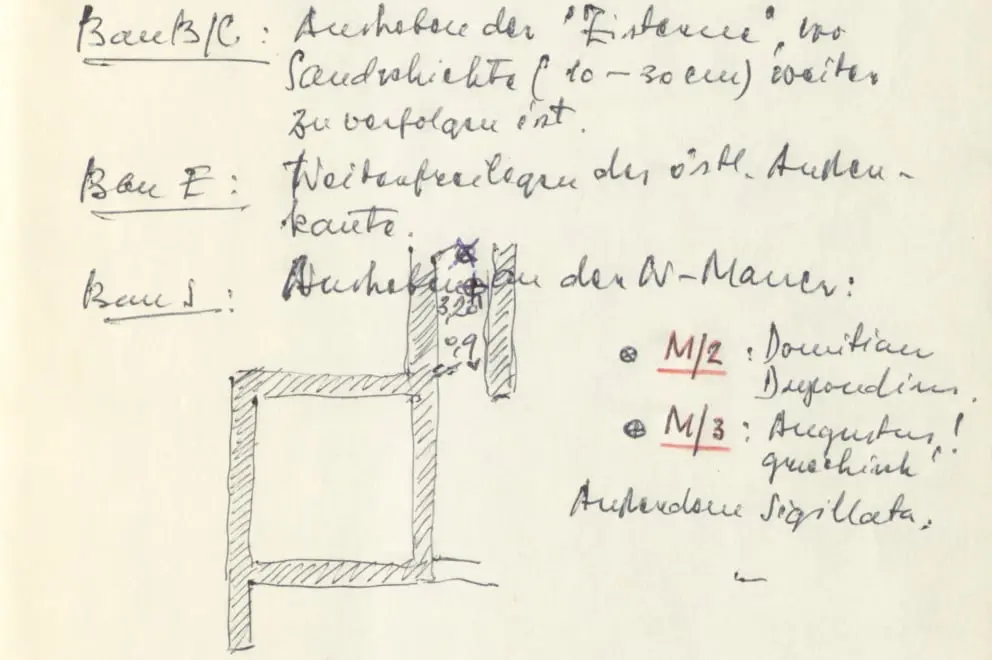 Bau B/C: Ausheben der "Zisterne", wo
Sandschichte (10-30cm) weiter
zu verfolgen ist.
Bau E: Weiterfreilegen der östl. Außen-
kante.
Bau I: Ausheben an der N-Mauer:
3,20
0,9
⊗ M/2: Domitian
Dupondius.
⊕ M/3: Augustus!
griechisch!
Außerdem Sigillata.